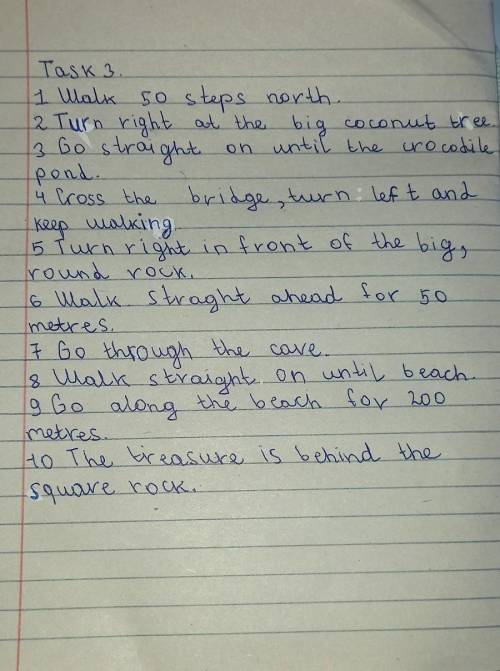 Task 3.
1 Walk 50 steps north.
2 Turn right at the big coconut tree.
3 Go straight on until the crocodile
pond.
4 Cross the bridge, turn left and
keep walking.
5 Turn right in front of the big,
round rock.
6 Walk straght ahead for 50
metres.
7 Go through the cave.
8 Walk straight on until beach.
9 Go along the beach for 200
metres.
10 The treasure is behind the
square rock.